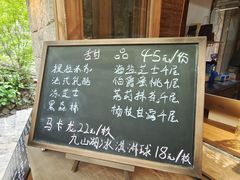 甜品 45元/份
提拉米苏 海盐芝士千层
法式乳酪 伯爵蜜桃千层
冻芝士 茉莉抹茶千层
黑森林 杨枝甘露千层
马卡龙 22元/枚
九山湖冰淇淋球 18元/枚